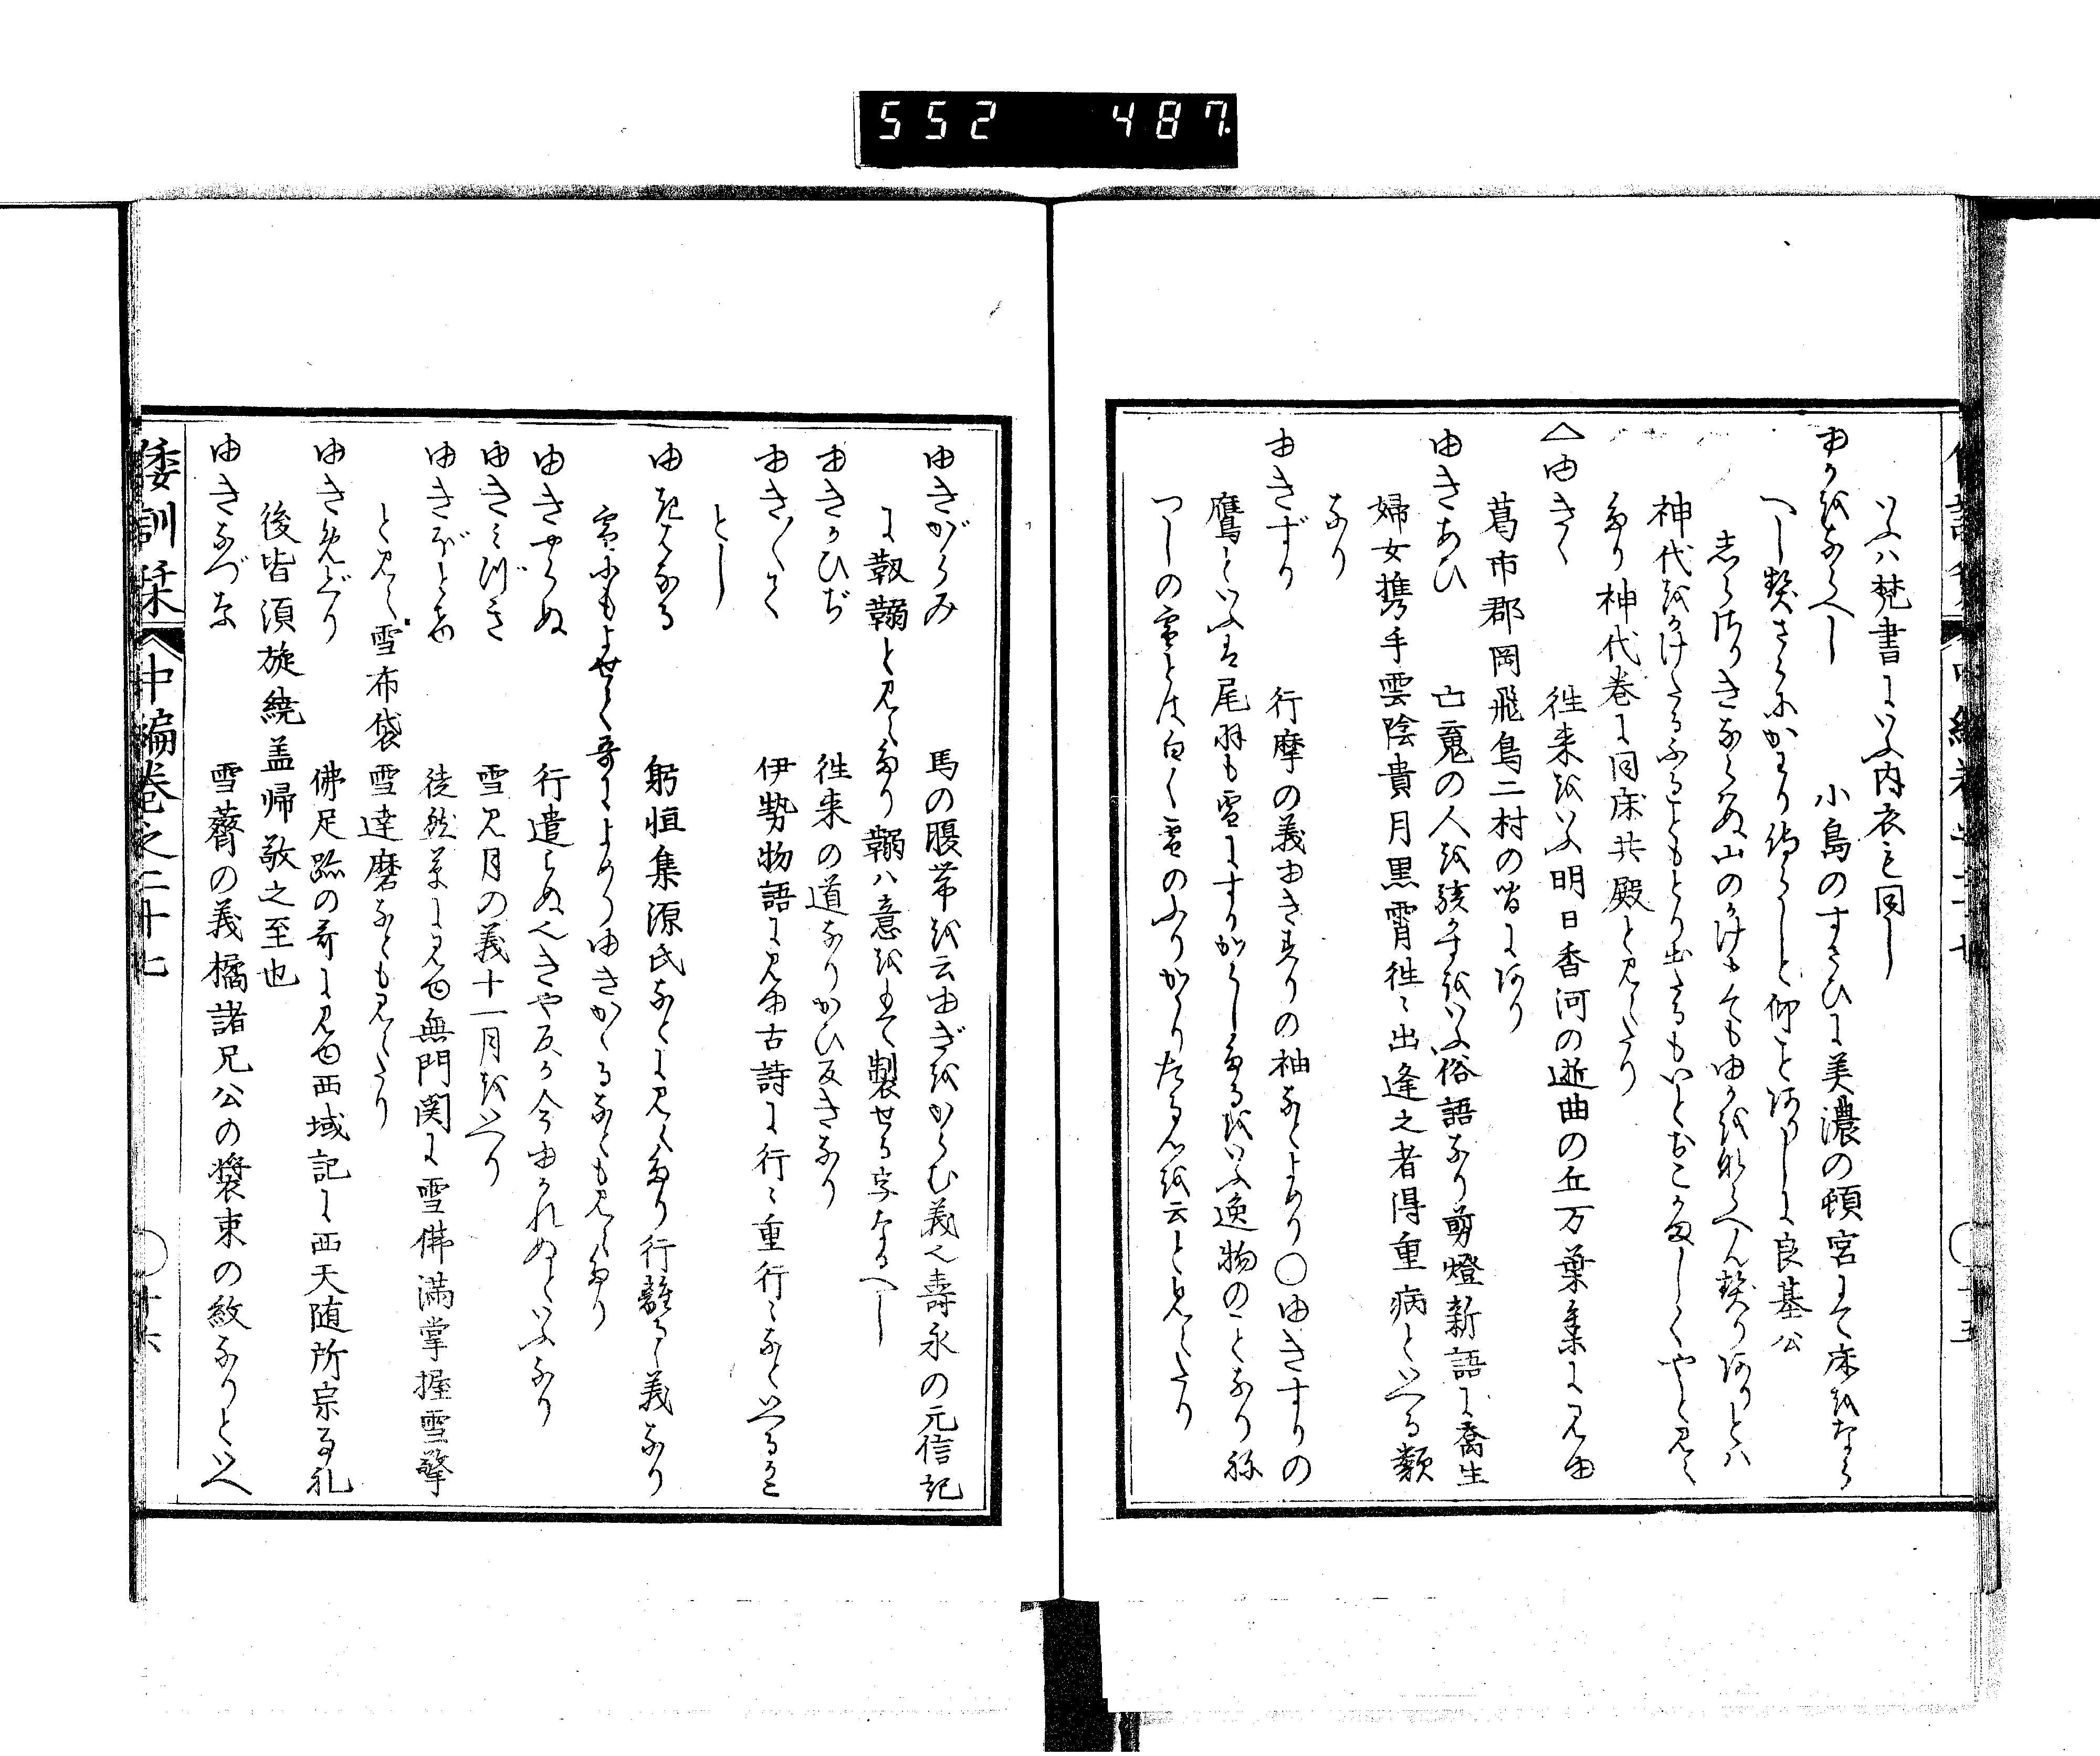 552 487
いふハ梵書にいふ内衣も同し
ゆかをならへし 小島のすさひに美濃の頓宮にて床をなら
へし契さらにかわり侍るましと仰ことありしに良基公
しらさりきならぬ山のかけまてもゆかを並へん契りありとハ
神代をかけたるふることもとり出たるもいとおこかましくやと見え
たり神代巻に同床共殿と見えたり
△ゆきゝ 徃来をいふ明日香河の逝曲の丘万葉集に見ゆ
葛市郡岡飛鳥二村の皆にあり
ゆきあひ 亡魂の人を駭かすをいふ俗語なり剪燈新語に喬生
婦女携手雲陰貴月黒霄徃ミ出逢之者得重病といへる類
なり
ゆきずり 行摩の義ゆきすりの袖なとよめり○ゆきすりの
鷹といふは尾羽も雪にすりかくしたるをいふ逸物のことなり ね
つしの雪とは白く雪のふりかゝりたる心を云と見えたり
ゆきがらみ 馬の腹帯を云ゆぎをからむ義也壽永の元信記
に靫䩹と見えたり䩹ハ意をもて製せる字なるへし
ゆきかひぢ 徃来の道なりかひ反きなり
ゆき〳〵て 伊勢物語に見ゆ古詩に行ミ重行ミなといへるかこ
とし
ゆきはなる 躬恒集源氏なとに見えたり行離るゝ義なり
雪にもよせて哥によめりゆきかゝるなとも見えたり
ゆきやらぬ 行遣らぬ也きや反か今ゆかれぬといふなり
ゆきみづき 雪見月の義十一月をいへり
ゆきぼとけ 徒然草に見ゆ無門関に雪佛満掌握雪擎
と見え雪布袋雪達磨なとも見えたり
ゆきめぐり 佛足跡の哥に見ゆ西域記に西天随所宗事礼
後皆須旋繞盖帰敬之至也
ゆきなづな 雪薺の義橘諸兄公の装束の紋なりといへ
倭訓栞 中編巻之二十七 ○十六